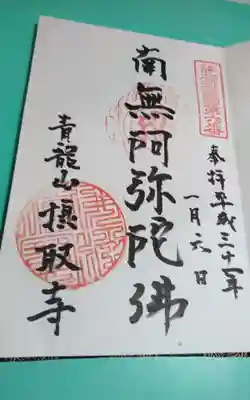 奉拝平成三十一年
一月六日
南無阿弥陀佛
青龍山摂取寺